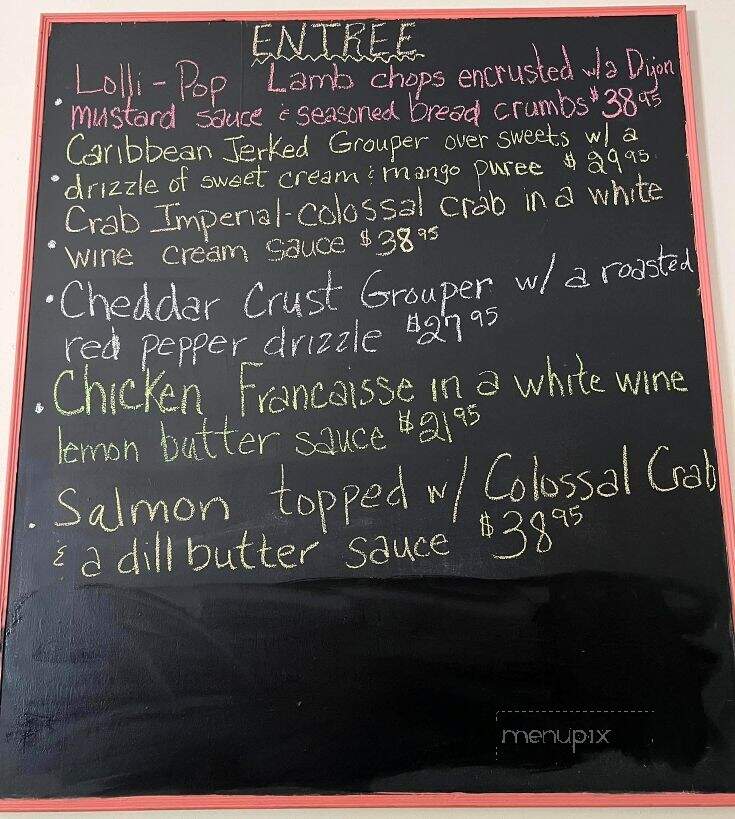 ENTREE
Lolli-Pop Lamb chops encrusted w/a Dijon
mustard sauce & seasoned bread crumbs $38.95
Caribbean Jerked Grouper over sweets w/ a
drizzle of sweet cream & mango puree $29.95
Crab Imperial-Colossal crab in a white
wine cream sauce $38.95
Cheddar Crust Grouper w/ a roasted
red pepper drizzle $27.95
Chicken Francaisse in a white wine
lemon butter sauce $21.95
Salmon topped w/ Colossal Crab
& a dill butter sauce $38.95
menupix